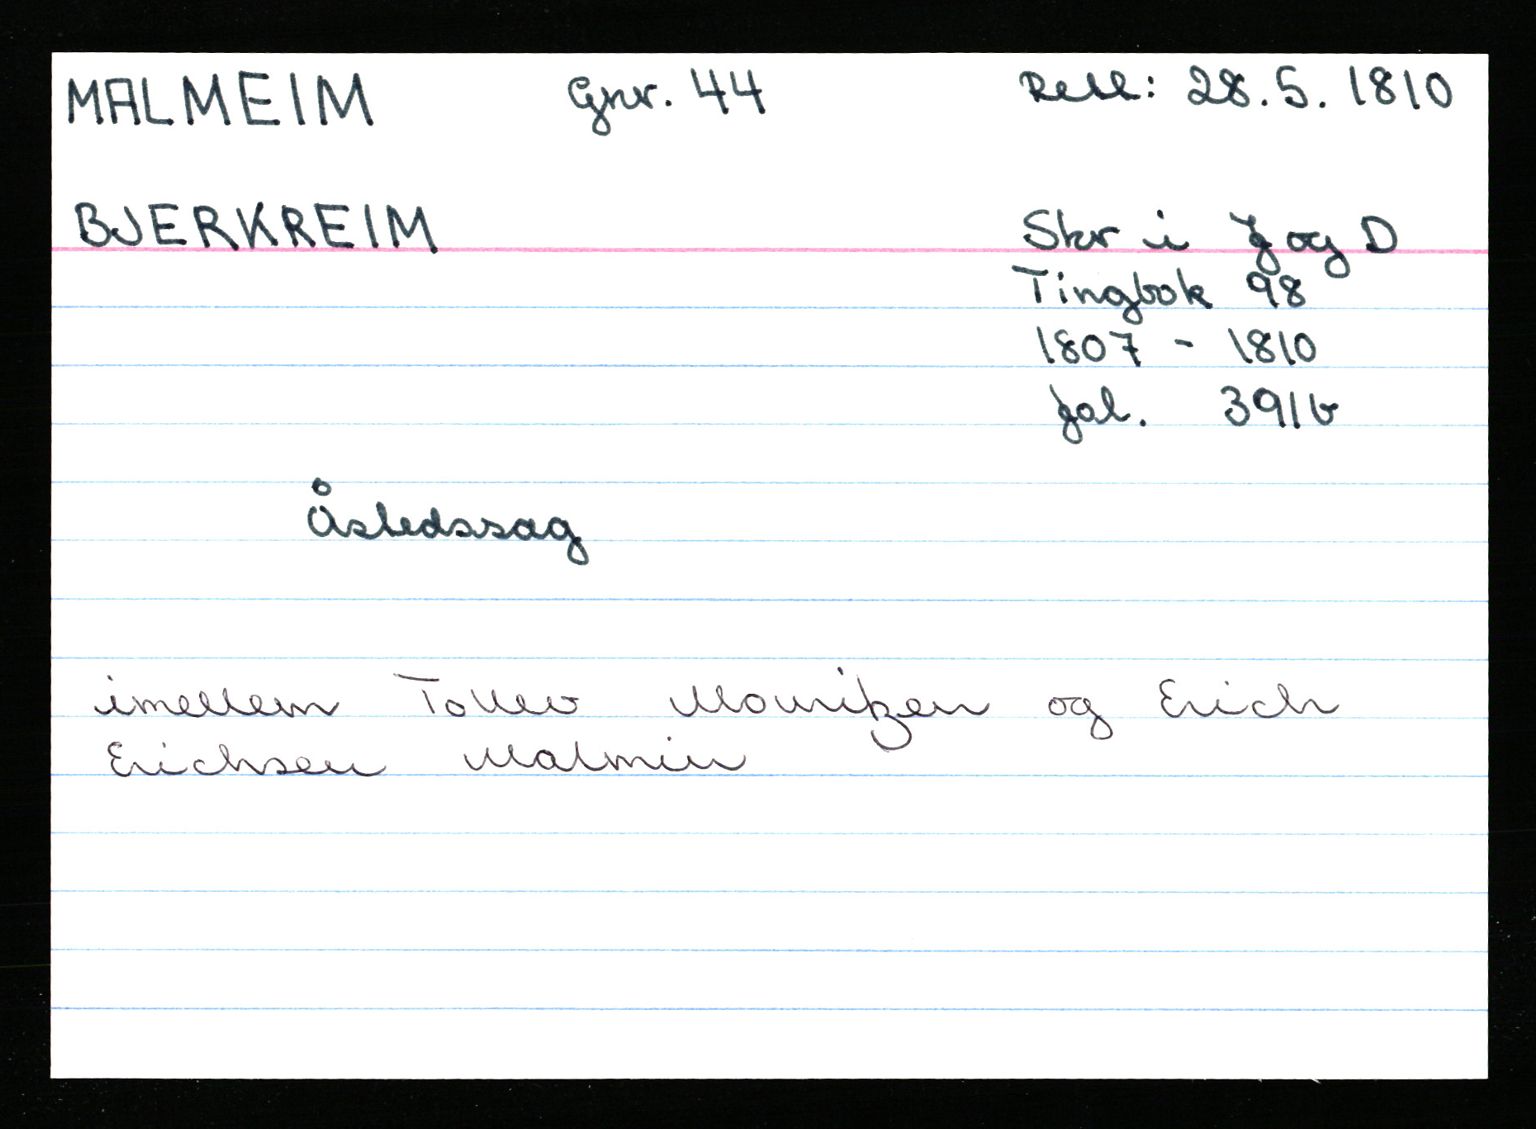 MALMEIM Gnr. 44 Rett: 28.5. 1810
BJERKREIM Skr i J og D
Tingbok 98
1807 - 1810
fol. 391b
Åstedssag
imellem Tollev Mouritzen og Erich
Erichsen Malmin